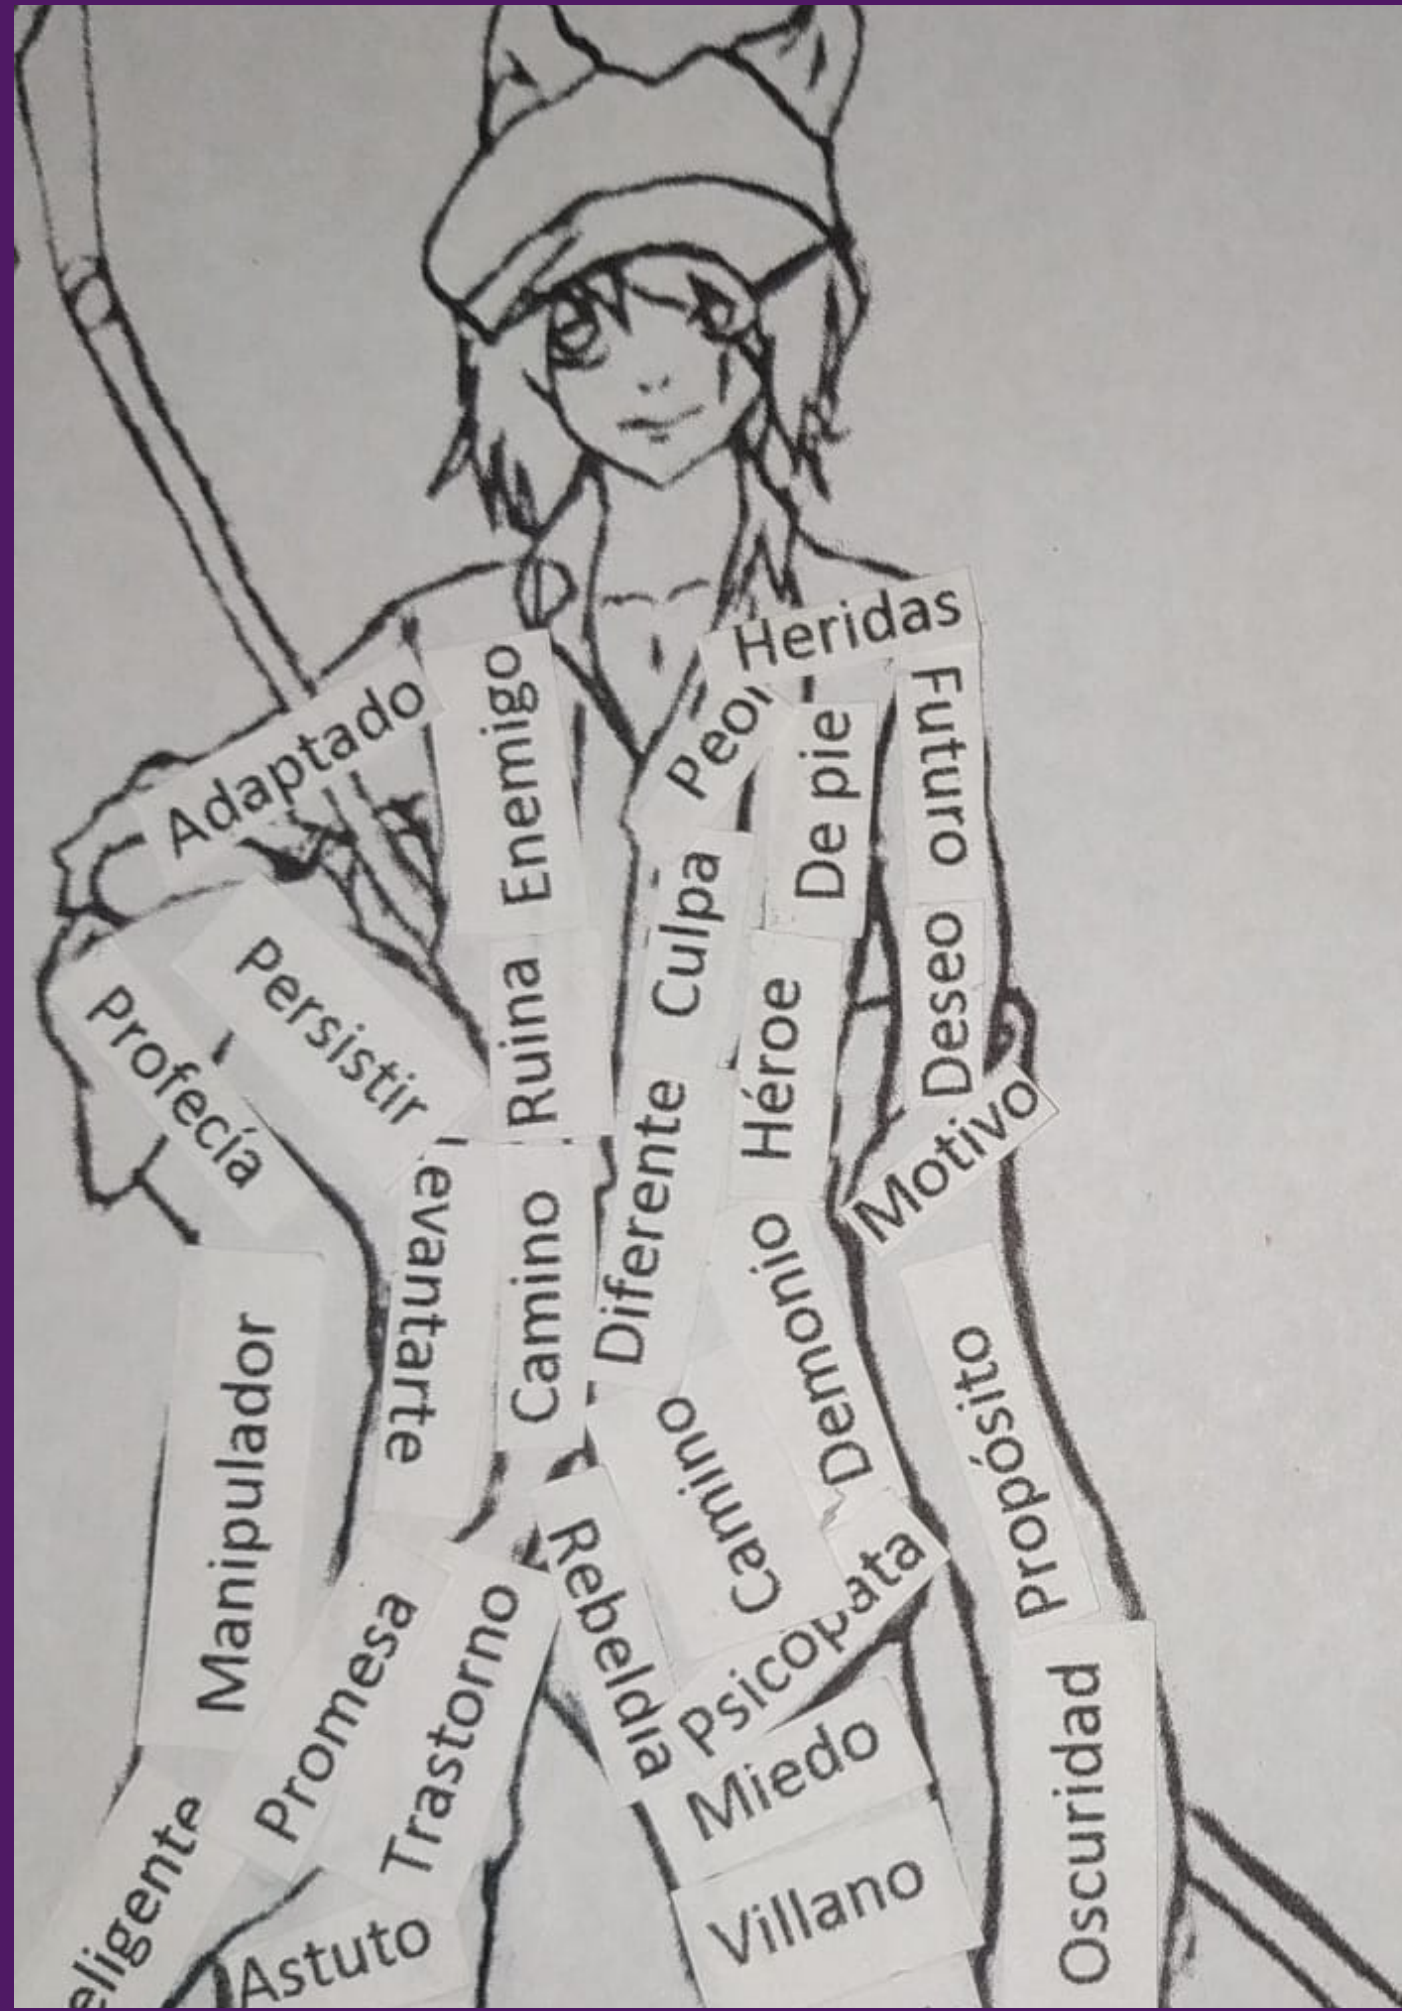 Heridas
Adaptado
Enemigo
Peor
De pie
Futuro
Culpa
Deseo
Persistir
Profecía
Ruina
Héroe
Motivo
Diferente
evantarte
Camino
Demonio
Manipulador
Propósito
Camino
Rebeldía
Psicopata
Promesa
Trastorno
Miedo
Oscuridad
eligente
Villano
Astuto